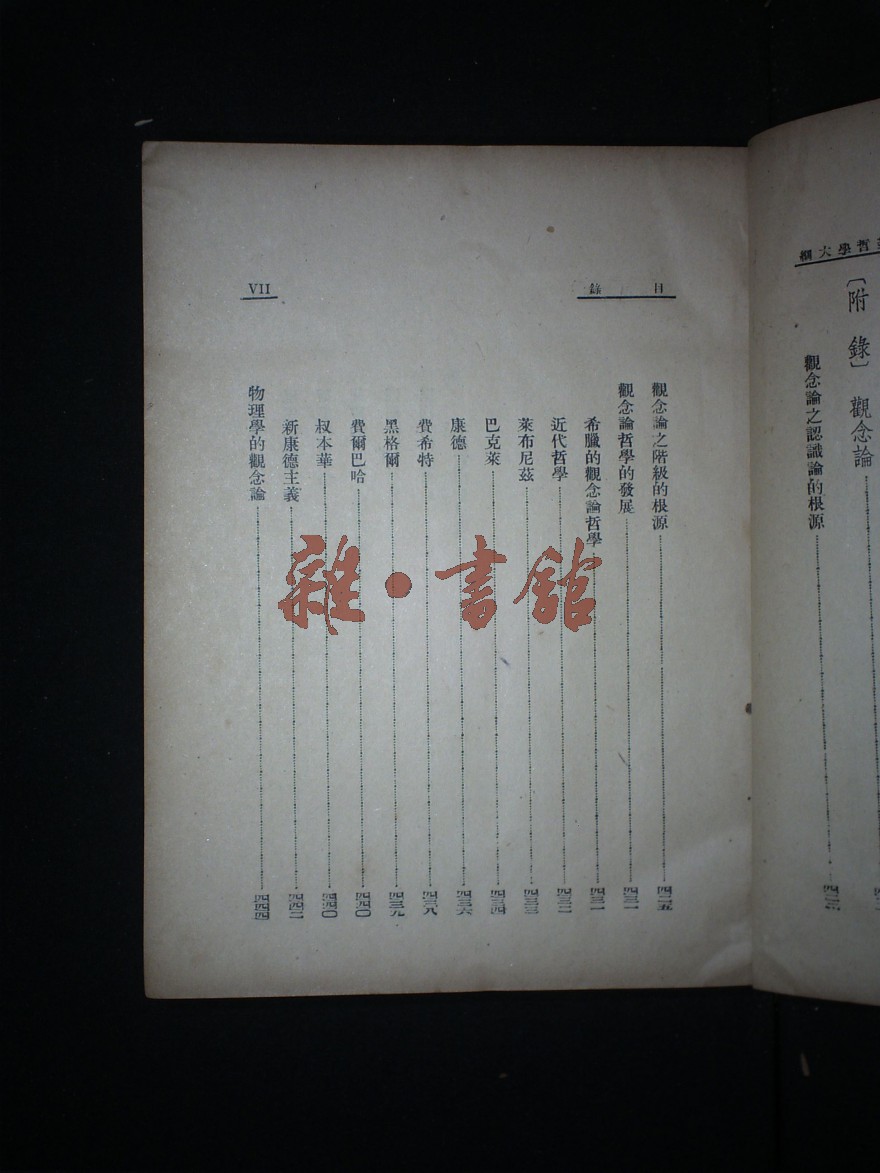 哲學大綱
〔附錄〕 觀念論
觀念論之認識論的根源
目錄
VII
觀念論之階級的根源 四二五
觀念論哲學的發展 四三一
希臘的觀念論哲學 四三一
近代哲學 四三二
萊布尼茲 四三三
巴克萊 四三四
康德 四三六
費希特 四三八
黑格爾 四三九
費爾巴哈 四四〇
叔本華 四四〇
新康德主義 四四二
物理學的觀念論 四四四
雜·書館